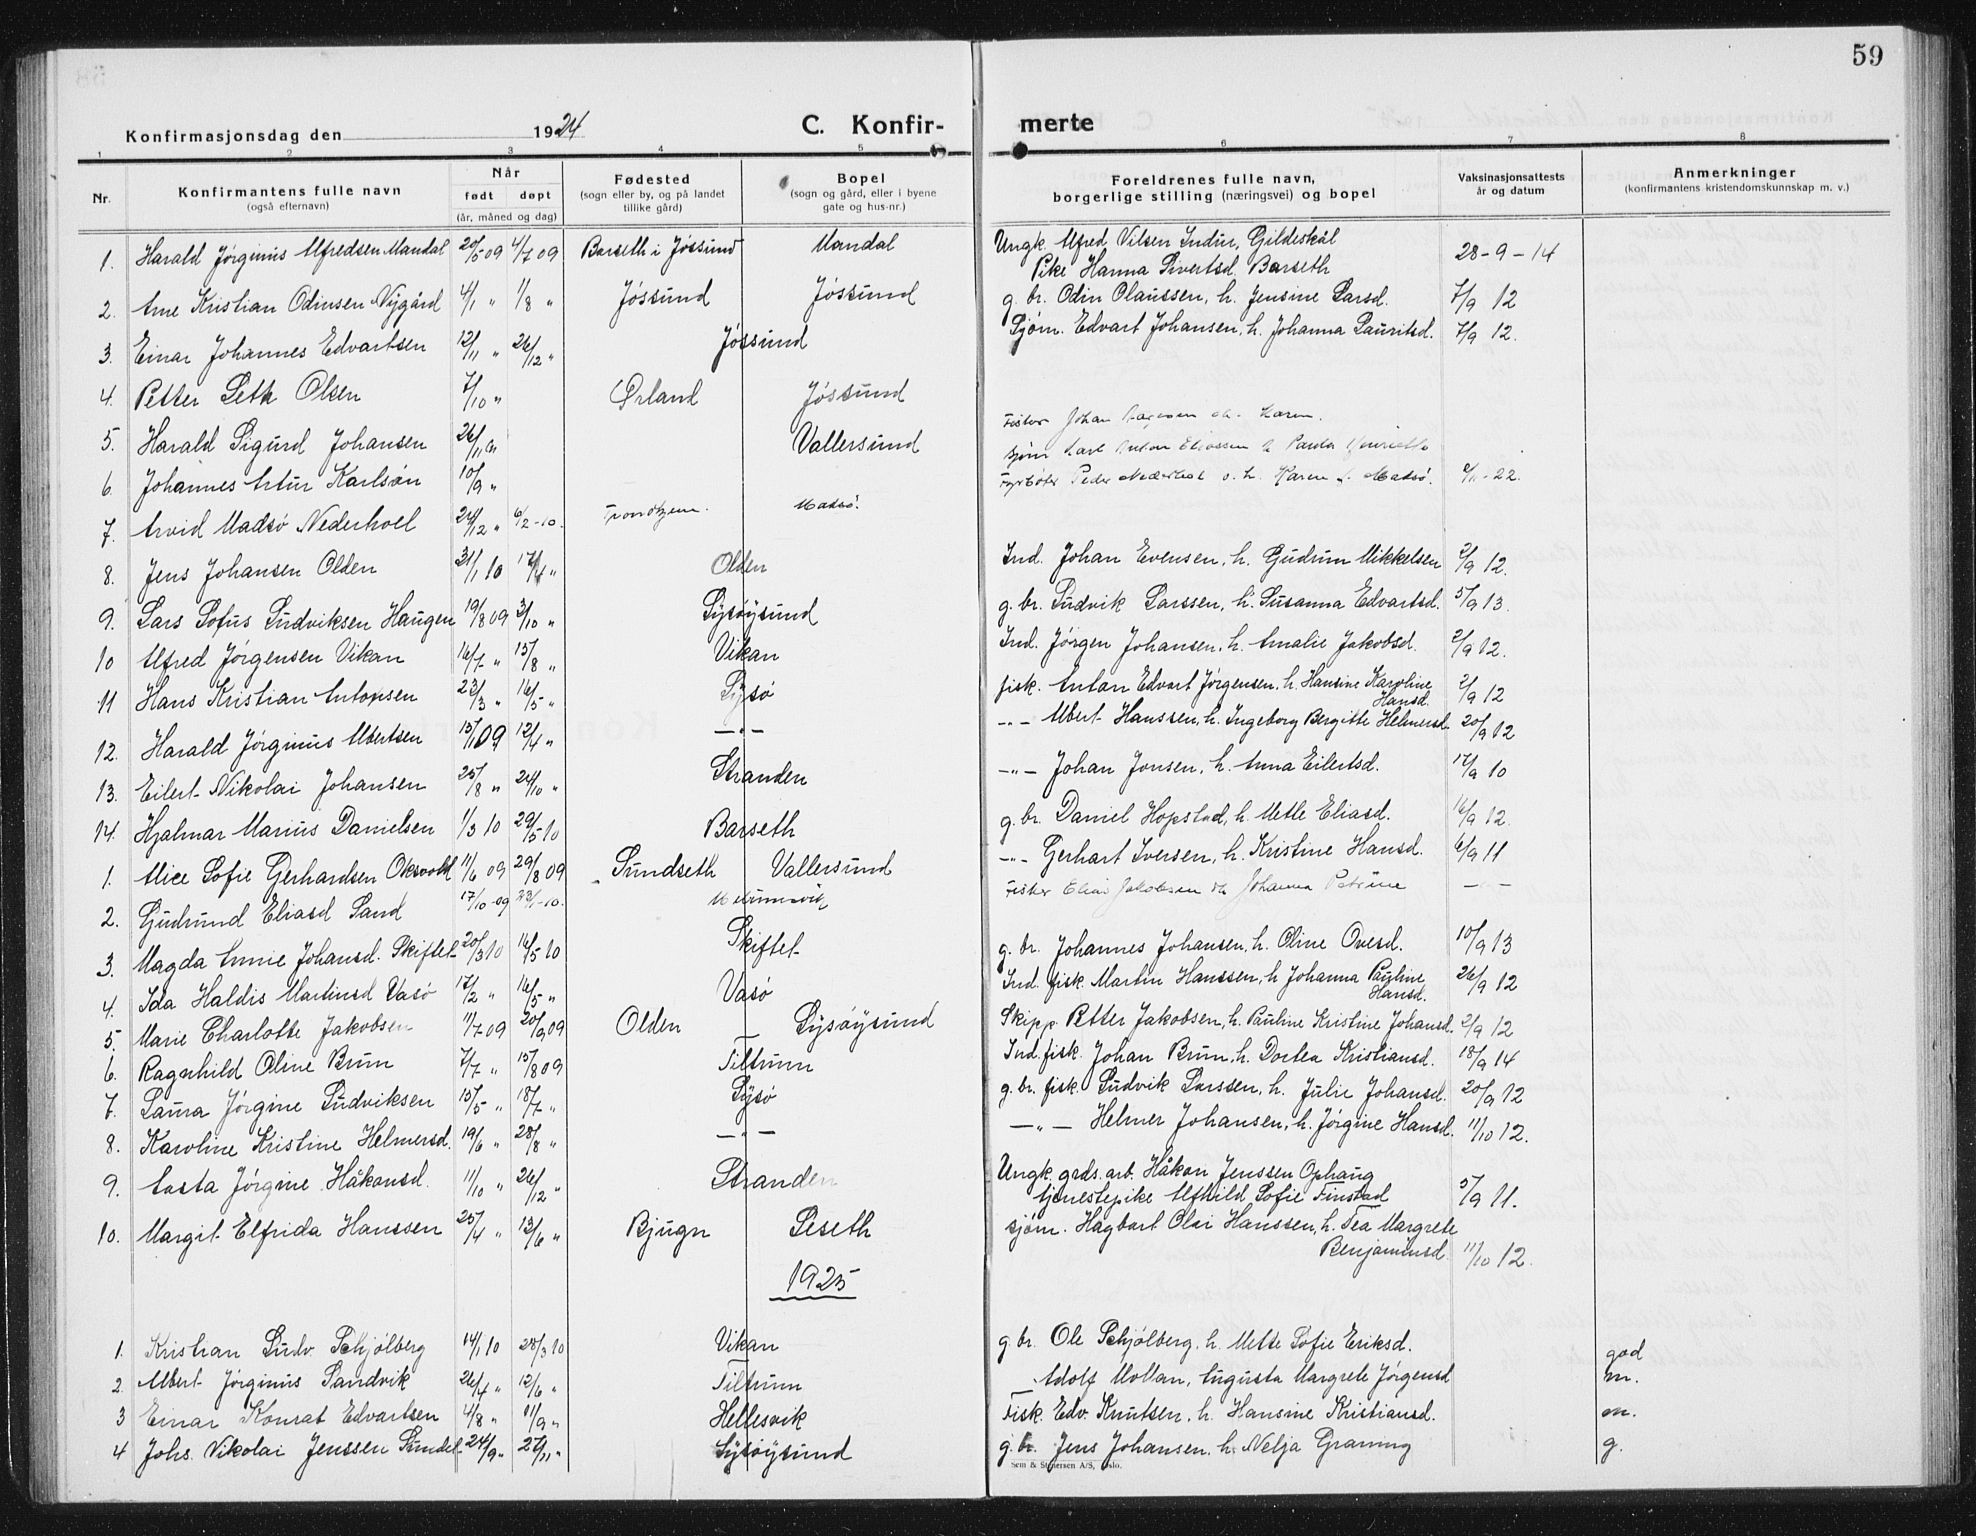 59
Konfirmasjonsdag den 1924 C. Konfir- merte
1 2 3 4 5 6 7 8
Nr. Konfirmantens fulle navn (også efternavn) Når født døpt (år, måned og dag) Fødested (sogn eller by, og på landet tillike gård) Bopel (sogn og gård, eller i byene gate og hus-nr.) Foreldrenes fulle navn, borgerlige stilling (næringsvei) og bopel Vaksinasjonsattests år og datum Anmerkninger (konfirmantens kristendomskunnskap m. v.)
1. Harald Jørginus Alfredsen Mandal 20/5 09 4/7 09 Barseth i Jøssund Mandal Ungk. Alfred Vilsen Indur, Gildeskål 28-9-14
Pike Hanna Sivertsd. Barseth
2. Arne Kristian Odinsen Nygård 4/1 " 1/8 " Jøssund Jøssund g. br. Odin Olaussen, h. Jensine Larsd. 7/9 12
3. Einar Johannes Edvartsen 12/11 " 26/12 " Jøssund Sjøm. Edvart Johansen, h. Johanna Lauritsd. 7/9 12.
4. Petter Seth Olsen 7/10 " Ørland Jøssund
5. Harald Sigurd Johansen 26/11 Vallersund Fisker Johan h. Karen.
6. Johannes Artur Karlsøn 10/9 " sjøm Karl Anton Eliassen h Paula Henriette
7. Arvid Madsø Nederhoel 24/12 " 6/2-10. Trondhjem. Madsø. Fyrbøter Peder Nederhoel o. h. Karen f. Madsø. 2/11-22.
8. Jens Johansen Olden 31/1 10 17/4 " Olden Ind. Johan Evensen, h. Gudrum Mikkelsen 2/9 12.
9. Lars Sofus Ludviksen Haugen 19/8 09 3/10 " Lysøysund g. br. Ludvik Larssen, h. Susanna Edvartsd. 5/9 13.
10 Alfred Jørgensen Vikan 16/7 " 15/8 " Vikan Ind. Jørgen Johansen, h. Amalie Jakobsd. 2/9 12.
11 Hans Kristian Antonsen 23/3 " 16/5 " Lysø fisk. Anton Edvart Jørgensen, h. Hansine Karoline Hansd. 2/9 12
12. Harald Jørginus Albertsen 15/1 09 12/4 " -"- -"- Albert Hanssen, h. Ingeborg Bergitte Helmersd. 20/9 12
13. Eilert Nikolai Johansen 25/8 " 24/10 " Stranden -"- Johan Jonsen, h. Anna Eilertsd. 17/9 10
14. Hjalmar Marius Danielsen 1/3 10 29/5 10 Barseth g. br. Daniel Hopstad, h. Mette Eliasd. 16/9 12.
1. Alice Sofie Gerhardsen Oksvold 11/6 09 29/8 09 Sundseth Vallersund -"- Gerhart Iversen, h. Kristine Hansd. 6/9 11
2. Gudrund Eliasd Sand 17/10-09 23/1-10. Fisker Elias Jakobsen h. Johanna Petrine - -
3. Magda Annie Johansd. Skiftet 20/3 10 16/5 10 Skiftet g. br. Johannes Johansen, h. Oline Ovesd. 10/9 13
4. Ida Haldis Martinsd Vasø 17/2 " 16/5 " Vasø Ind. fisk. Martin Hanssen, h Johanna Pauline Hansd. 26/9 12
5. Marie Charlotte Jakobsen 11/7 09 20/9 09 Olden Lysøysund Skipp. Petter Jakobsen, h. Pauline Kristine Johansd. 2/9 12
6. Ragnhild Oline Brun 7/7 " 15/8 09 Tiltrum Ind. fisk. Johan Brun, h. Dortea Kristiansd. 18/9 14
7. Laura Jørgine Ludviksen 15/5 " 18/7 " Lysø g. br. fisk. Ludvik Larssen, h. Julie Johansd. 20/9 12
8. Karoline Kristine Helmersd. 19/6 " 28/8 " -"- -"- Helmer Johansen, h. Jørgine Hansd. 11/10 12.
9. Aasta Jørgine Håkonsd. 11/10 " 26/12 " Stranden Ungk. grds. arb. Håkon Jenssen Ophaug 5/9 11.
tjenestepike Alfhild Sofie Finstad
10. Margit Elfrida Hanssen 25/4 " 13/6 " Bjugn Seseth sjøm. Hagbart Olai Hanssen, h. Tea Margrete Benjaminsd. 11/10 12.
1925
1. Kristian Ludv. Schjølberg 14/1 10 28/3 10 Vikan g. br. Ole Schjølberg. h. Mette Sofie Eriksd. god
2. Albert Jørginus Sandvik 26/4 " 12/6 " Tiltrum Adolf Mollan, Augusta Margrete Jørgensd m.
3 Einar Konrat Edvartsen 4/8 " 11/9 " Hellesvik Fisk. Edv. Knutsen, h. Hansine Kristiansd. m.
4 Johs. Nikolai Jenssen Sundet 24/9 " 27/11 " Lysøysund g. br. Jens Johansen, h. Nelja Graning g.
Sem & Stenersen A/S, Oslo.